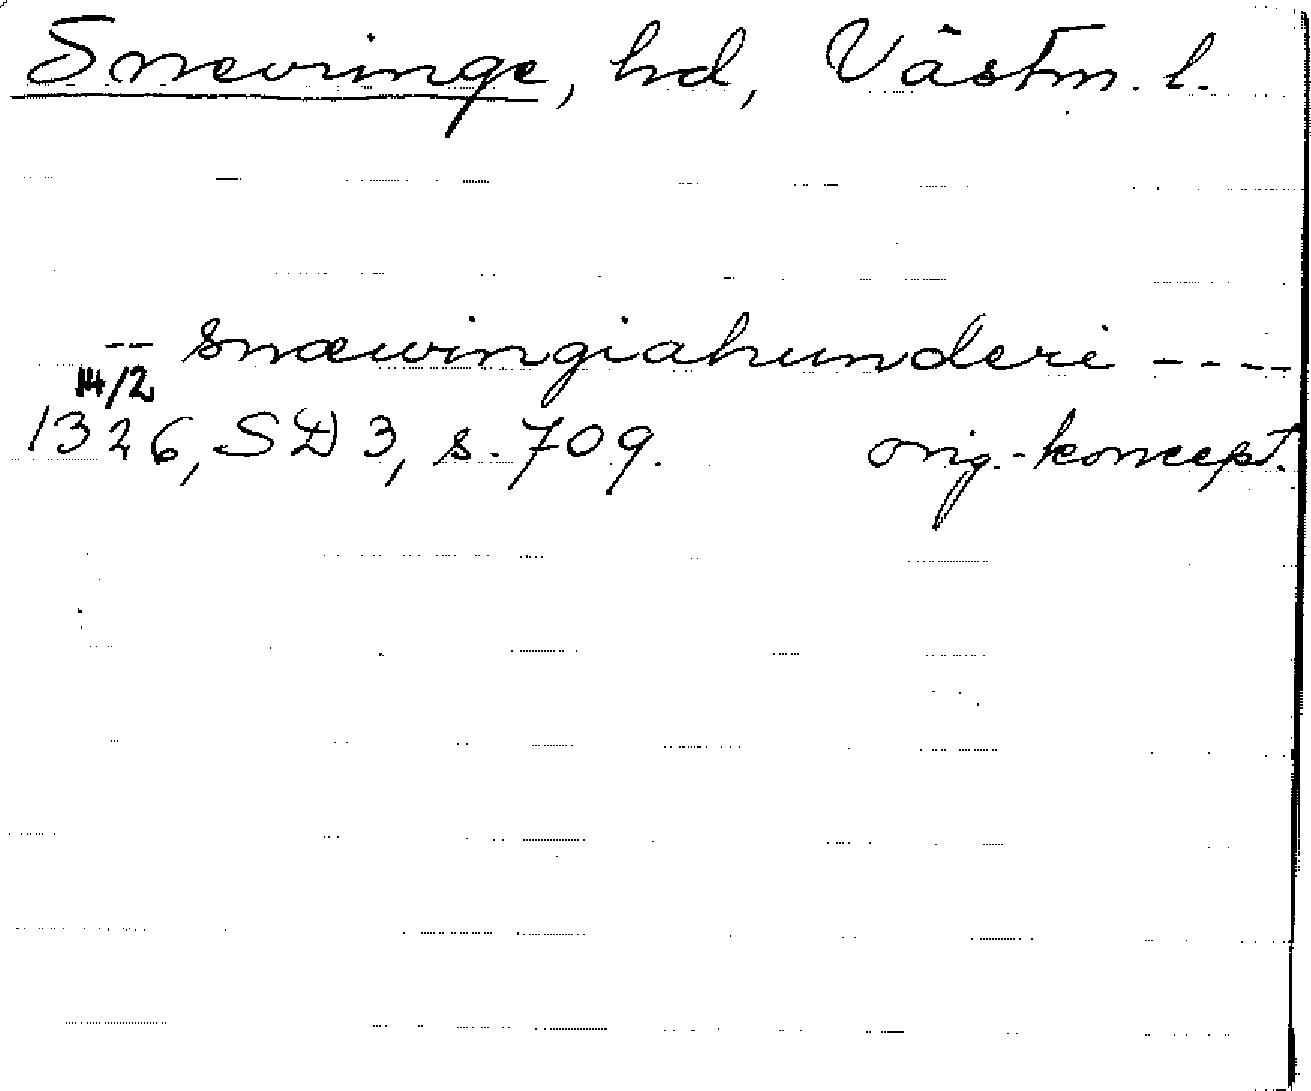 Snevringe, hd, Västm. l.
-- snæwingiahunderi ----
14/2
1326, SD 3, s. 709. orig.-koncept.